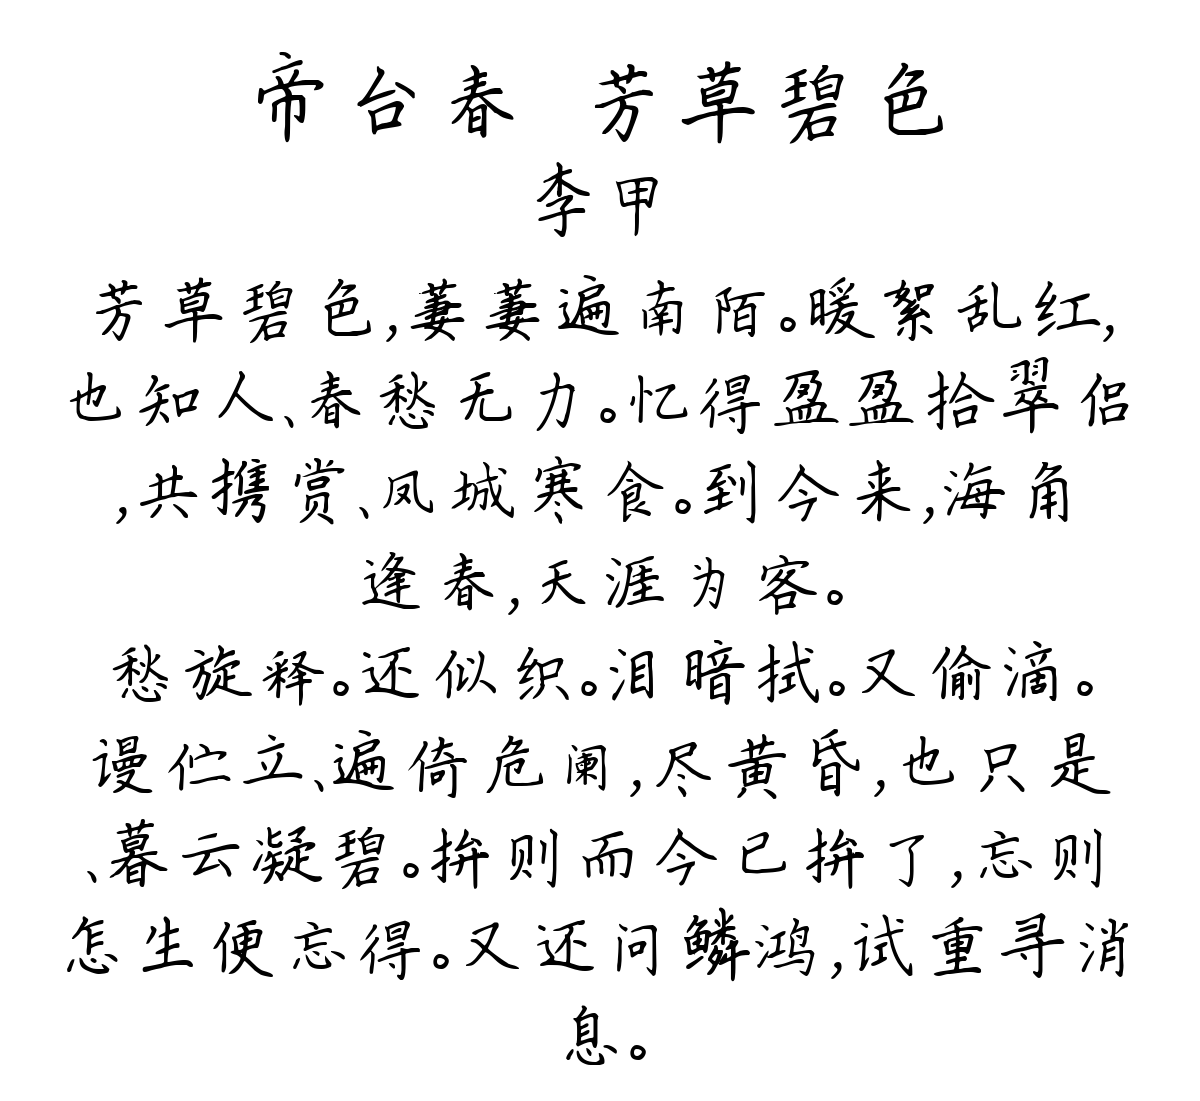 帝台春 芳草碧色
李甲
芳草碧色,萋萋遍南陌。暖絮乱红,
也知人、春愁无力。忆得盈盈拾翠侣
,共携赏、凤城寒食。到今来,海角
逢春,天涯为客。
愁旋释。还似织。泪暗拭。又偷滴。
谩伫立、遍倚危阑,尽黄昏,也只是
、暮云凝碧。拚则而今已拚了,忘则
怎生便忘得。又还问鳞鸿,试重寻消
息。